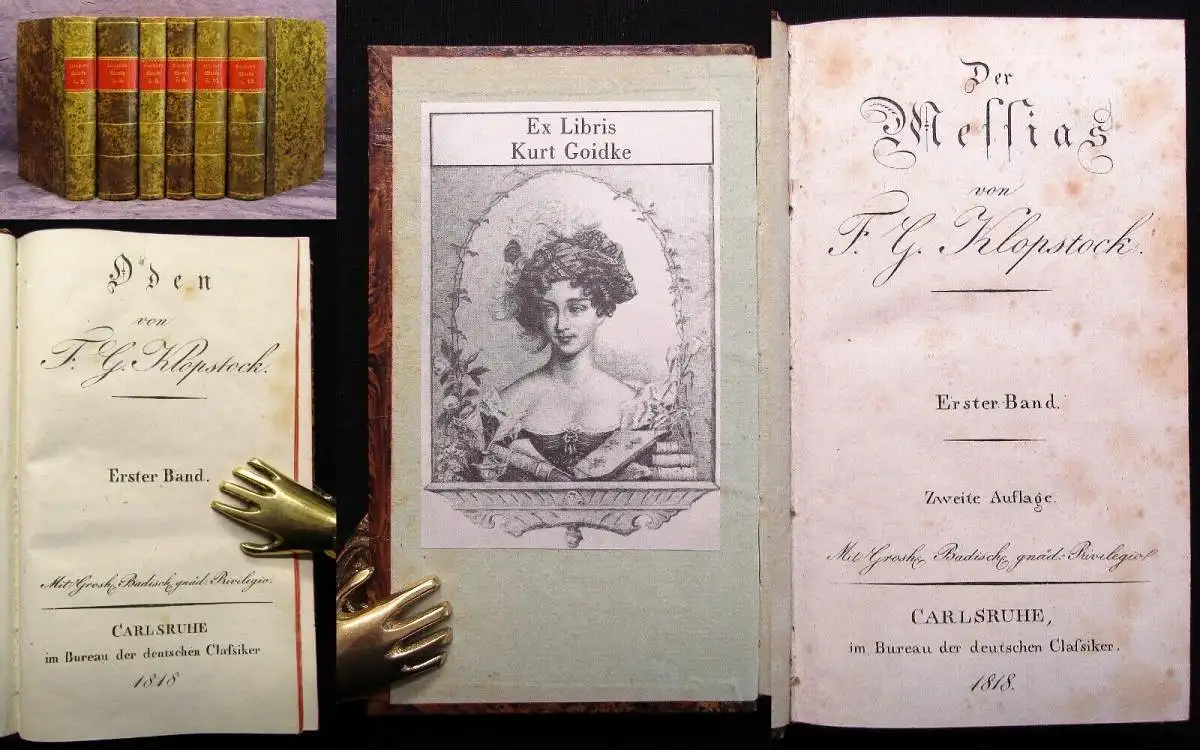 Oden
von
F. G. Klopstock.
Erster Band.
Mit Grosh. Badisch. gnäd. Privilegio.
CARLSRUHE
im Bureau der deutschen Claſsiker
1818
Ex Libris
Kurt Goidke
Der
Meſſias
von
F. G. Klopstock.
Erster Band.
Zweite Auflage.
Mit Grosh. Badisch. gnäd. Privilegio.
CARLSRUHE,
im Bureau der deutschen Claſsiker.
1818.